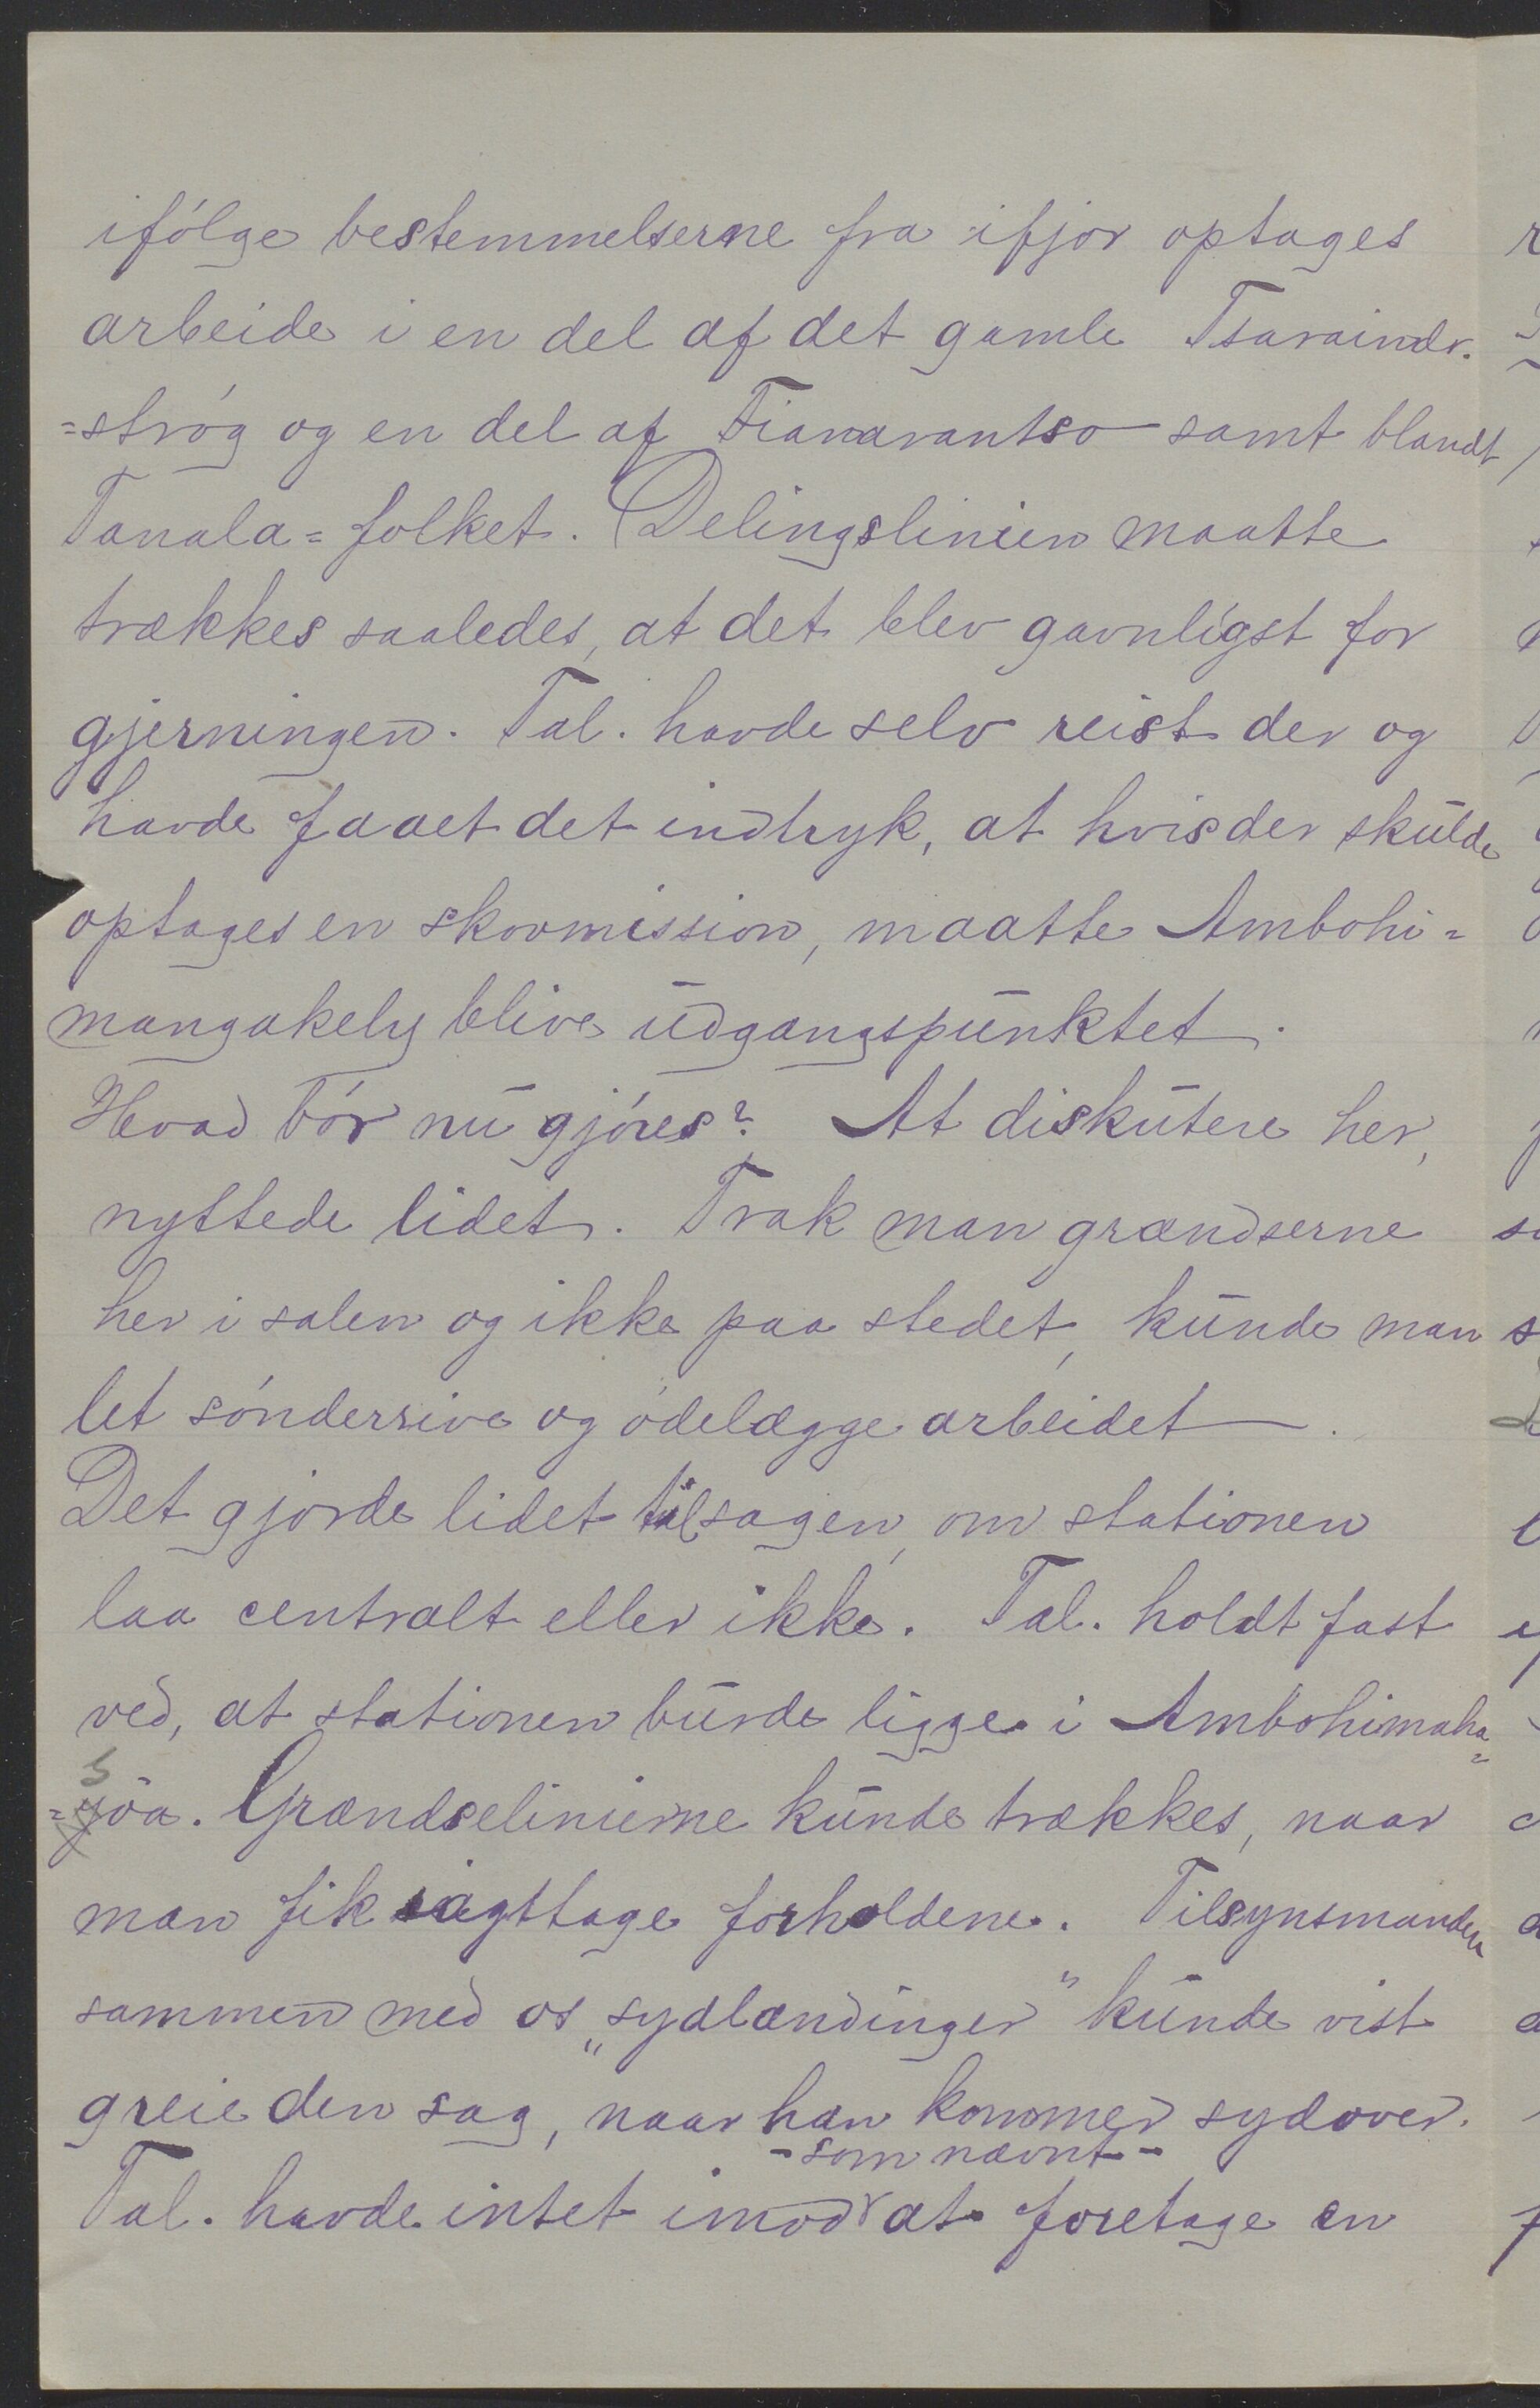 ifólge bestemmelserne fra ifjor optages
arbeide i en del af det gamle Tsaraindr.
=stróg og en del af Fianarantso samt blandt
Tanala=folket. Delingslinien maatte
trækkes saaledes, at det blev gavnligst for
gjerningen. Tal. havde selv reist der og
havde faaet det indtryk, at hvis der skulde
optages en skovmission, maatte Ambohi=
mangakely blive udgangspunktet.
Hvad bór nu gjóres? At diskutere her,
nyttede lidet. Trak man grændserne
her i salen og ikke paa stedet, kunde man
let sónderrive og ódelægge arbeidet.
Det gjorde lidet til sagen, om stationen
laa centralt eller ikke. Tal. holdt fast
ved, at stationen burde ligge i Ambohimaha=
=soa. Grændselinierne kunde trækkes, naar
man fik iagttage forholdene. Tilsynsmanden
sammen med os „sydlændinger“ kunde vist
greie den sag, naar han kommer sydover.
-som nævnt-
Tal. havde intet imod at foretage en